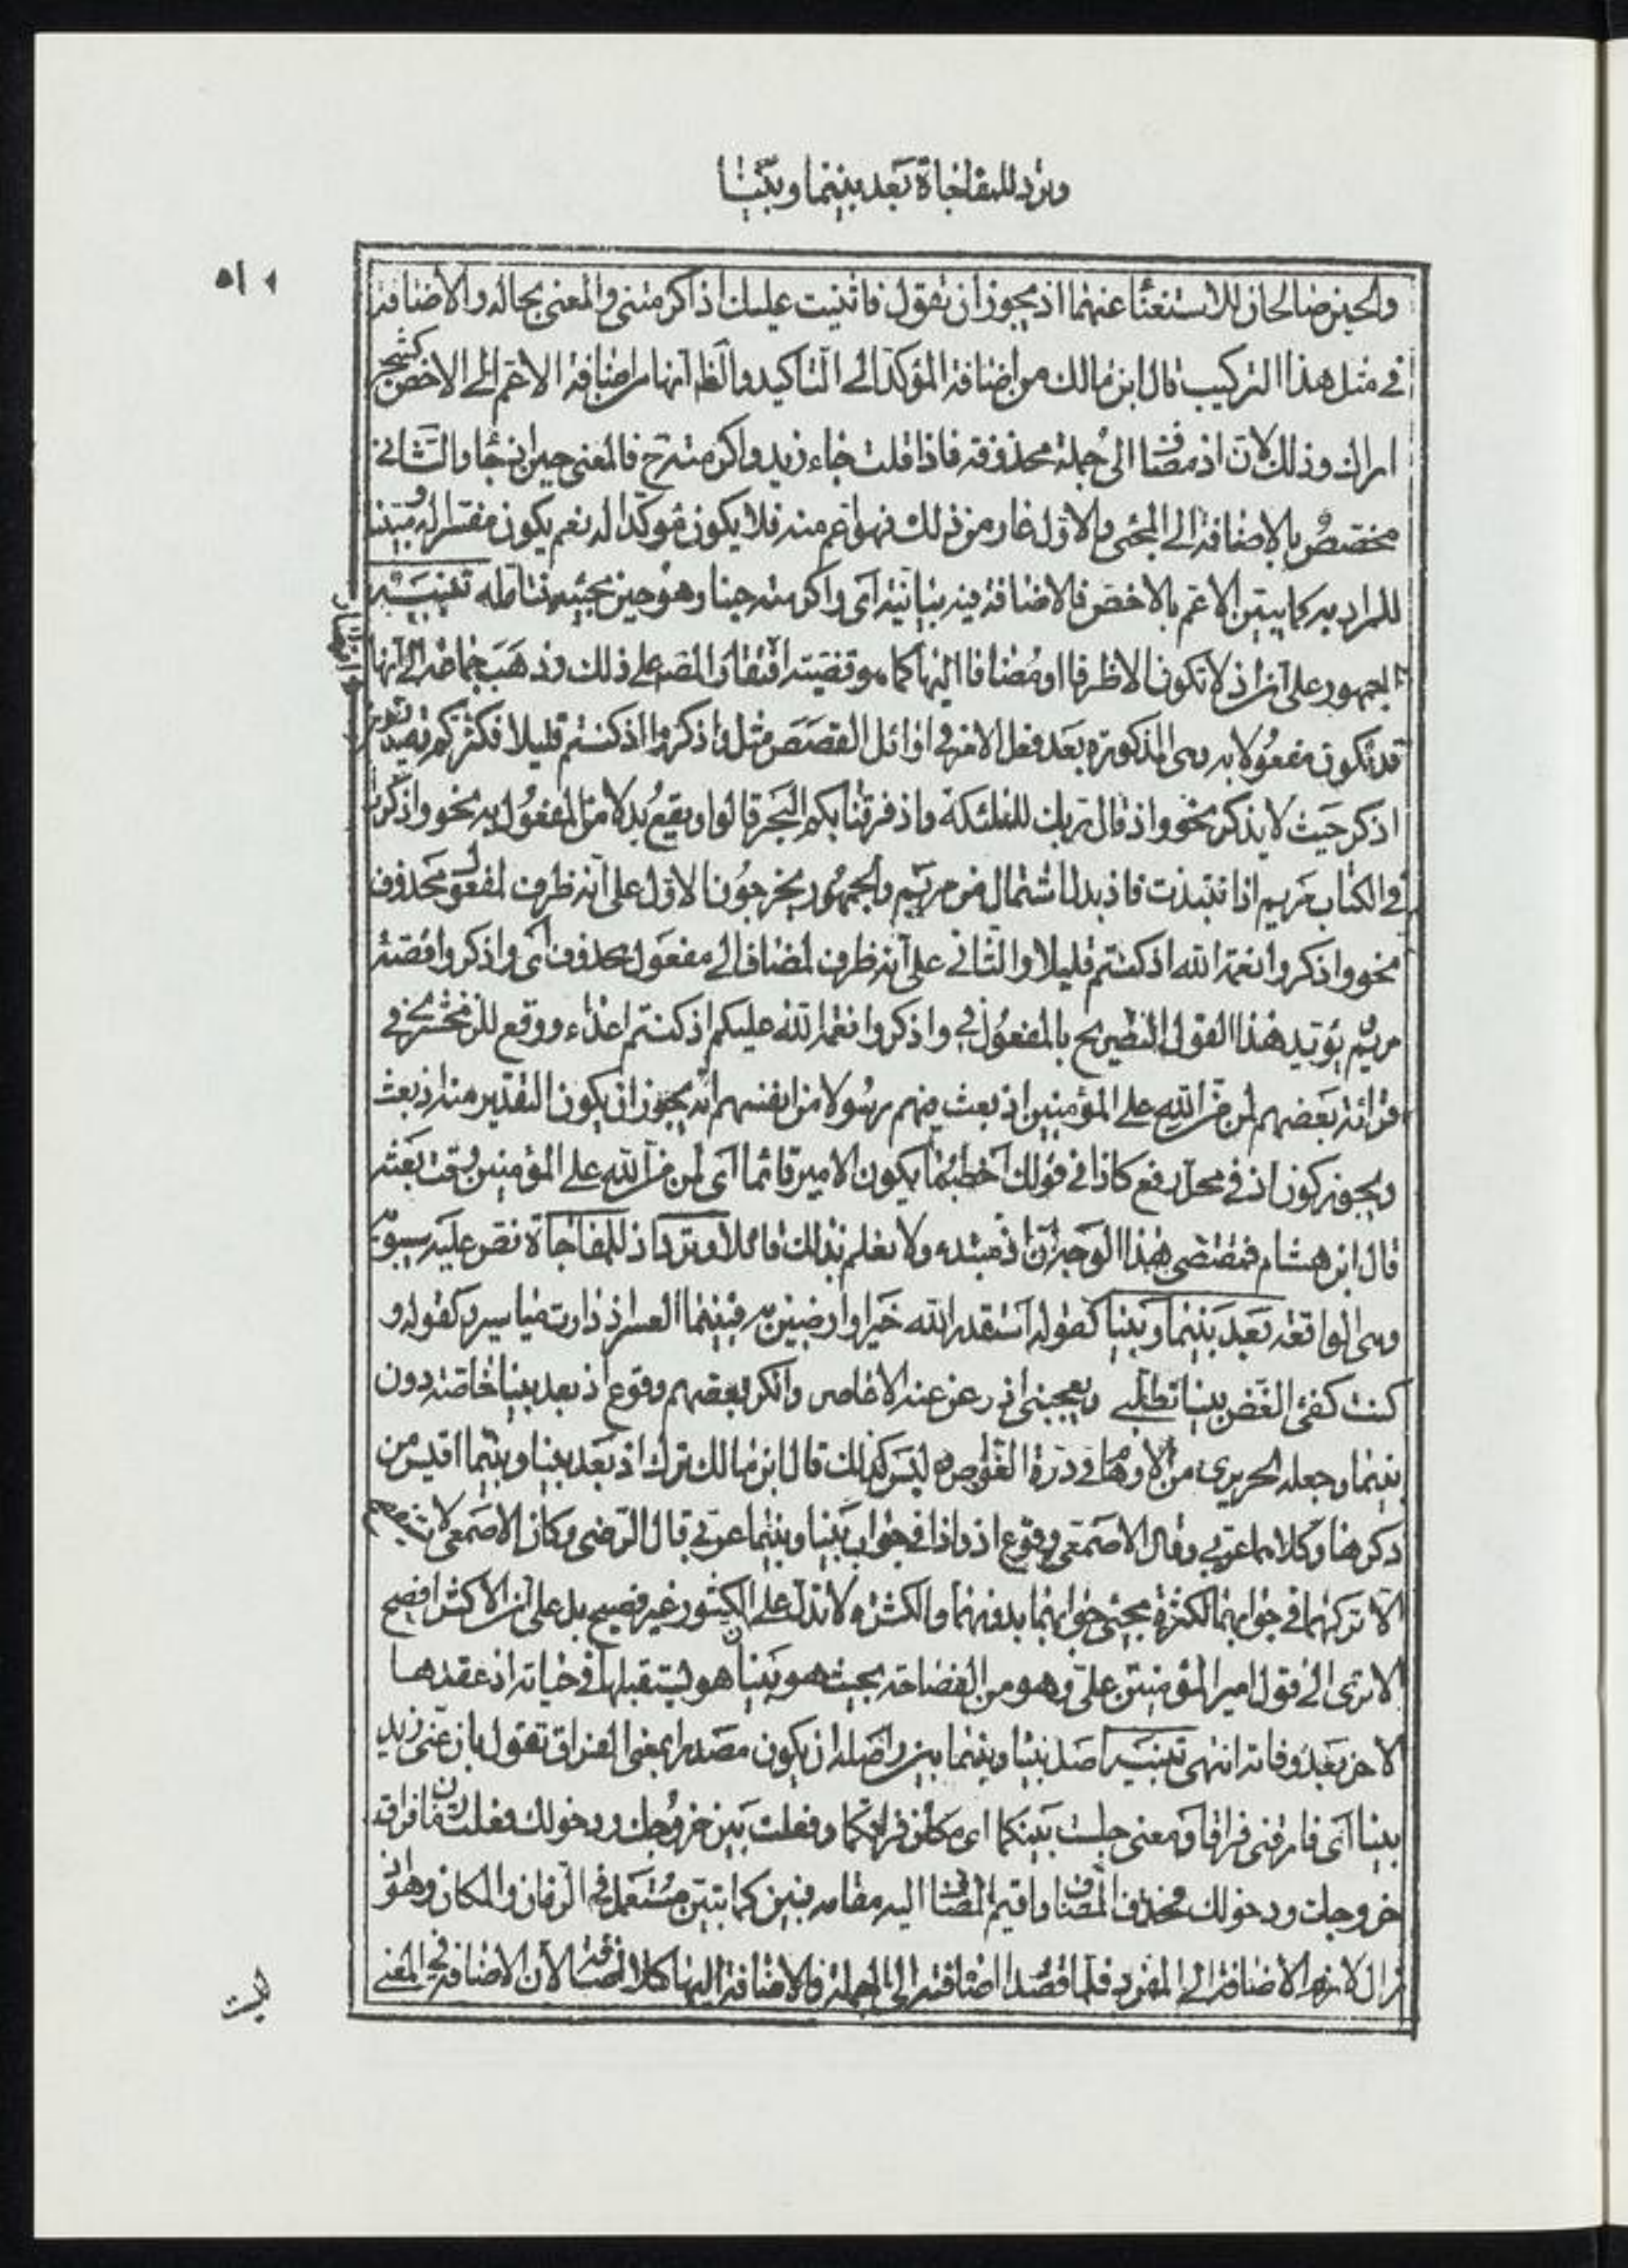 وترد للمفاجاة بعد بينما وبينا
٥١
والحين صالحان للاستغناء عنهما اذ يجوز ان تقول فاثنيت عليك اذ اكرمتنى والمعنى بحاله والاضافة
فى مثل هذا التركيب قال ابن مالك من اضافة المؤكد الى التاكيد والظ انها من اضافة الاعم الى الاخص كشجر
اراك وذلك لان اذ مضافة الى جملة محذوفة فاذا قلت جاء زيد واكرمته ح فالمعنى حين اذ جاء والثانى
مختص بالاضافة الى المجئ والاول عار من ذلك فهو اعم منه فلا يكون مؤكدا له نعم يكون مفسرا له ومبينا
للمراد به كما يبين الاعم بالاخص فالاضافة فيه بيانية اى واكرمته حينا وهو حين مجيئه فتامله تنبيه
الجمهور على ان اذ لا تكون الا ظرفا او مضافا اليها كما هو قضية اقتصار المصنف على ذلك وذهب جماعة الى انها
قد تكون مفعولا به وهى المذكورة بعد فعل الامر فى اوائل القصص مثل واذكروا اذ كنتم قليلا فكثركم بتقدير
اذكر حيث لا يذكر نحو واذ قال ربك للملئكة واذ فرقنا بكم البحر قالوا ويقع بدلا من المفعول به نحو واذكر
فى الكتاب مريم اذ انتبذت فاذ بدل اشتمال من مريم والجمهور يخرجون الاول على انه ظرف لمفعول محذوف
نحو واذكروا نعمة الله اذ كنتم قليلا والثانى على انه ظرف لمضاف الى مفعول محذوف اى واذكروا قصة
مريم يؤيد هذا القول التصريح بالمفعول فى واذكروا نعمة الله عليكم اذ كنتم اعداء ووقع للزمخشرى فى
قرائة بعضهم لمن من الله على المؤمنين اذ بعث فيهم رسولا من انفسهم انه يجوز ان يكون التقدير منه اذ بعث
ويجوز كون اذ فى محل رفع كاذا فى قولك اخطب ما يكون الامير قائما اى لمن من الله على المؤمنين وقت بعثه
قال ابن هشام فمقتضى هذا الوجه ان اذ مبتدء ولا نعلم بذلك قائلا وترد اذ للمفاجاة نص عليه سيبويه
وهى الواقعة بعد بينما وبينا كقوله استقدر الله خيرا وارضين به فبينما العسر اذ دارت مياسير وكقوله و
كنت كفئ الغصن بينا تظلنى ويعجبنى اذ زعزعته الاعاصر وانكر بعضهم وقوع اذ بعد بينا خاصة دون
بينما وجعله الحريرى من الاوهام فى درة الغواص وليس كذلك قال ابن مالك ترك اذ بعد بينا وبينما اقيس من
ذكرها وكلاهما عربى وقال الاصمعى وقوع اذ واذا فى جواب بينا وبينما عربى قال الرضى وكان الاصمعى لا يستفصح
الا تركهما فى جوابهما لكثرة مجئ جوابهما بدونهما والكثرة لا تدل على ان المكثور غير فصيح بل على ان الاكثر افصح
الا ترى الى قول امير المؤمنين على وهو من الفصاحة بحيث هو بينا هو يستقيلها فى حياته اذ عقدها
لاخر بعد وفاته انتهى تنبيه اصل بينا وبينما بين واصله ان يكون مصدرا بمعنى الفراق تقول بان عنى زيد
بينا اى فارقنى فراقا ومعنى جلست بينكما اى مكان فراقكما وفعلت بين خروجك ودخولك فعلت زمان فراق
خروجك ودخولك فحذف المضاف واقيم المضاف اليه مقامه فبين كما تبين مستعمل فى الزمان والمكان وهو ان
زال لازم الاضافة الى المفرد فلما قصد اضافته الى الجملة والاضافة اليها كلا اضافة لان الاضافة فى المعنى
ليست